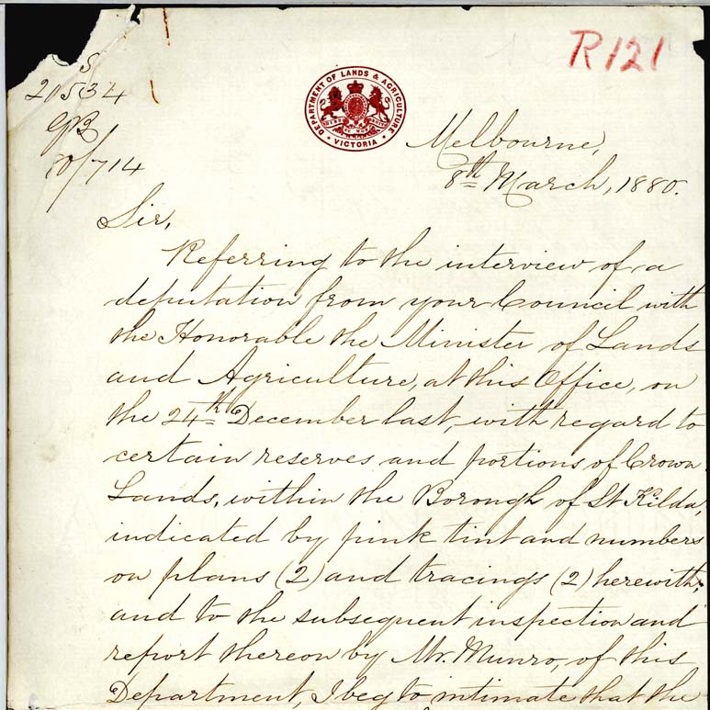 R121
S
21534
GB
80/714
DEPARTMENT OF LANDS & AGRICULTURE
• VICTORIA •
Melbourne,
8th March, 1880.
Sir,
Referring to the interview of a
deputation from your Council with
the Honorable the Minister of Lands
and Agriculture, at this Office, on
the 24th December last, with regard to
certain reserves and portions of Crown
Lands, within the Borough of St Kilda,
indicated by pink tint and numbers
on plans (2) and tracings (2) herewith;
and to the subsequent inspection and
report thereon by Mr. Munro, of this
Department, I beg to intimate that the